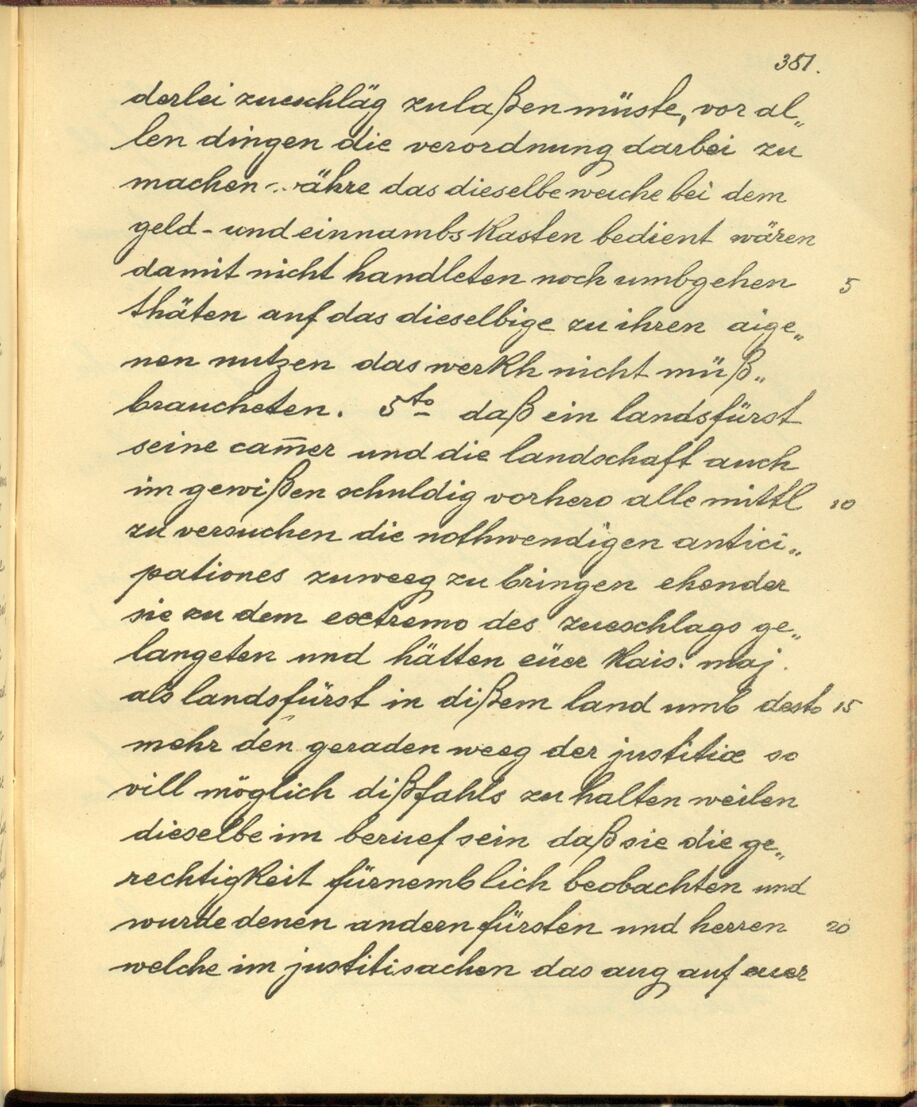 381.
derlei zueschläg zulaßen müste, vor al„
len dingen die verordnung darbei zu
machen .. währe das dieselbe welche bei dem
geld- und einnambs kasten bedient wären
damit nicht handleten noch umbgehen 5
thäten auf das dieselbige zu ihren aige„
nen nutzen das werkh nicht müß„
braucheten. 5to daß ein landsfürst
seine cam̅er und die landschaft auch
im gewißen schuldig vorhero alle mittl 10
zu versuchen die nothwendigen antici„
pationes zuweeg zu bringen ehender
sie zu dem extremo des zueschlags ge„
langeten und hätten eüer kais. maj.
als landsfürst in dißem land umb desto 15
mehr den geraden weeg der justitiæ so
vill möglich dißfahls zu halten weilen
dieselbe im beruef sein daß sie die ge„
rechtigkeit fürnemblich beobachten und
wurde denen andern fürsten und herren 20
welche im justitisachen das aug auf euer